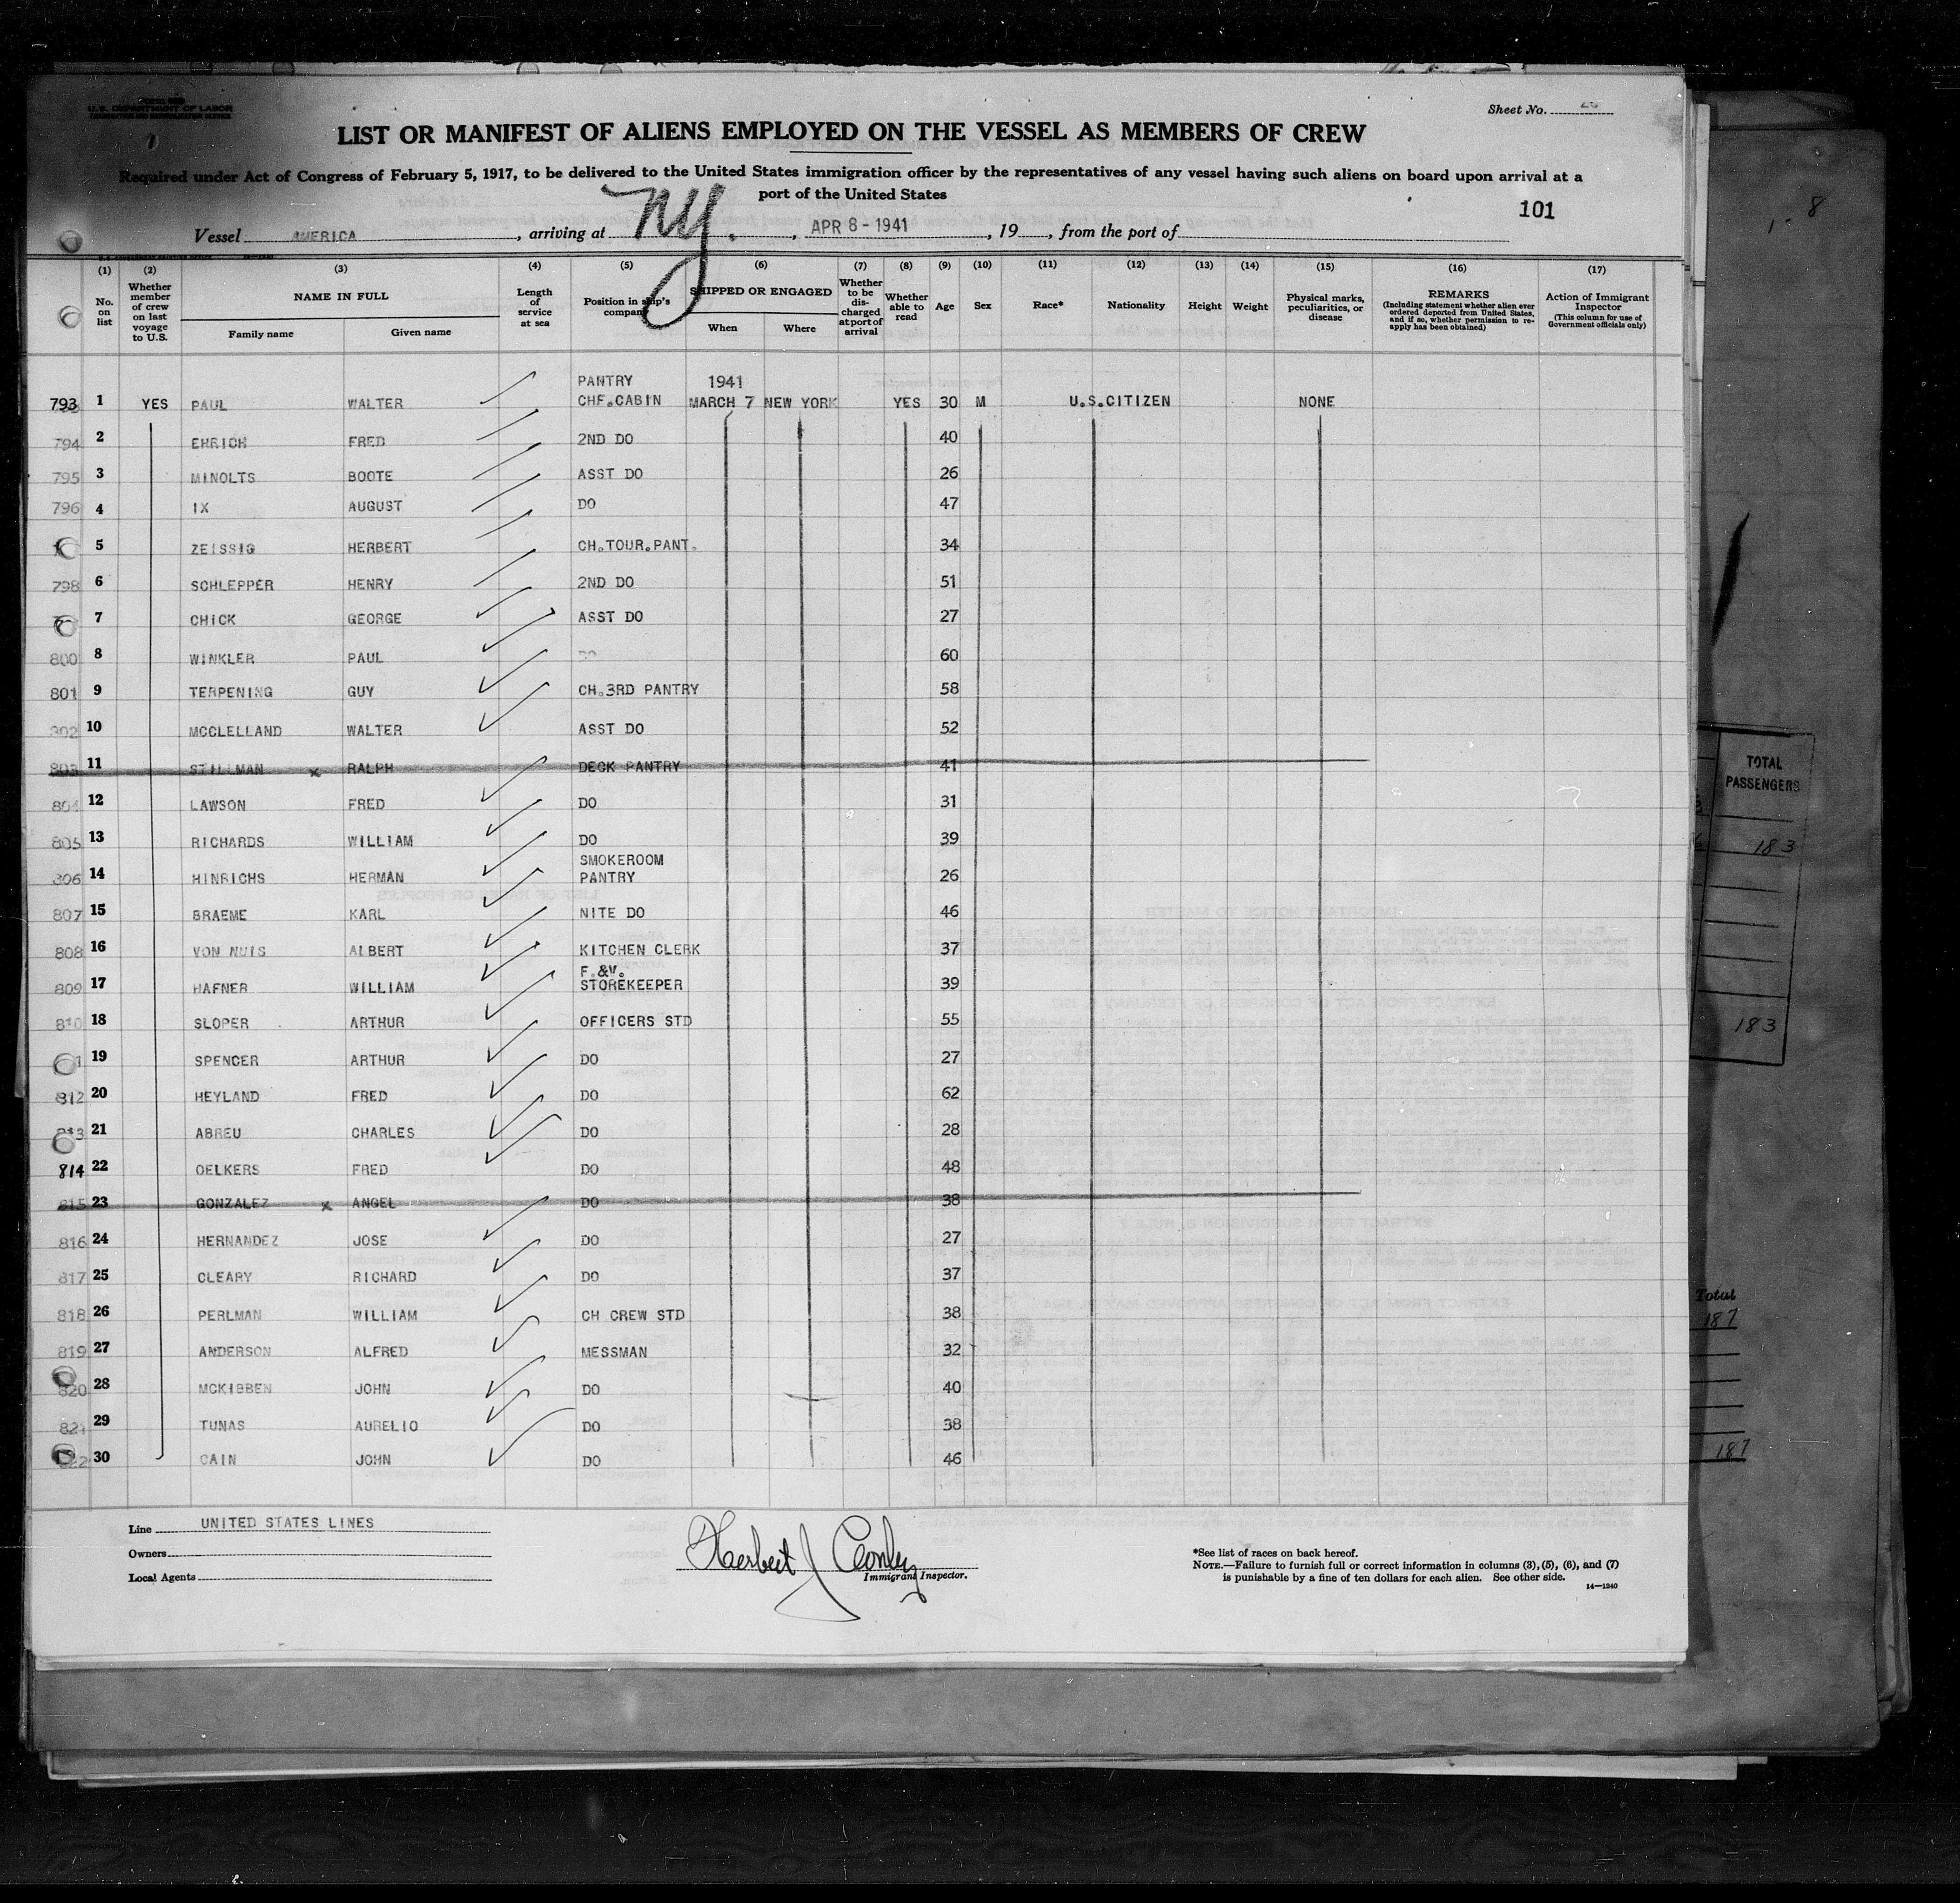 FORM 689
U.S. DEPARTMENT OF LABOR
IMMIGRATION AND NATURALIZATION SERVICE
Sheet No.
LIST OR MANIFEST OF ALIENS EMPLOYED ON THE VESSEL AS MEMBERS OF CREW
Required under Act of Congress of February 5, 1917, to be delivered to the United States immigration officer by the representatives of any vessel having such aliens on board upon arrival at a
port of the United States
101
Vessel AMERICA, arriving at NY., APR 8-1941, 19, from the port of
(1) (2) (3) (4) (5) (6) (7) (8) (9) (10) (11) (12) (13) (14) (15) (16) (17)
No. on list
Whether member of crew on last voyage to U.S.
NAME IN FULL
Family name Given name
Length of service at sea
Position in ship's company
SHIPPED OR ENGAGED
When Where
Whether to be discharged at port of arrival
Whether able to read
Age
Sex
Race*
Nationality
Height
Weight
Physical marks, peculiarities, or disease
REMARKS
(Including statement whether alien ever ordered deported from United States, and if so, whether permission to re-apply has been obtained)
Action of Immigrant Inspector
(This column for use of Government officials only)
PANTRY 1941
793 1 YES PAUL WALTER CHF.CABIN MARCH 7 NEW YORK YES 30 M U.S.CITIZEN NONE
794 2 EHRICH FRED 2ND DO 40
795 3 MINOLTS BOOTE ASST DO 26
796 4 IX AUGUST DO 47
5 ZEISSIG HERBERT CH.TOUR.PANT. 34
798 6 SCHLEPPER HENRY 2ND DO 51
7 CHICK GEORGE ASST DO 27
800 8 WINKLER PAUL DO 60
801 9 TERPENING GUY CH.3RD PANTRY 58
802 10 MCCLELLAND WALTER ASST DO 52
803 11 STILLMAN x RALPH DECK PANTRY 41
804 12 LAWSON FRED DO 31
805 13 RICHARDS WILLIAM DO 39
SMOKEROOM
806 14 HINRICHS HERMAN PANTRY 26
807 15 BRAEME KARL NITE DO 46
808 16 VON NUIS ALBERT KITCHEN CLERK 37
F.&V.
809 17 HAFNER WILLIAM STOREKEEPER 39
810 18 SLOPER ARTHUR OFFICERS STD 55
19 SPENCER ARTHUR DO 27
812 20 HEYLAND FRED DO 62
813 21 ABREU CHARLES DO 28
814 22 OELKERS FRED DO 48
815 23 GONZALEZ x ANGEL DO 38
816 24 HERNANDEZ JOSE DO 27
817 25 CLEARY RICHARD DO 37
818 26 PERLMAN WILLIAM CH CREW STD 38
819 27 ANDERSON ALFRED MESSMAN 32
820 28 MCKIBBEN JOHN DO 40
821 29 TUNAS AURELIO DO 38
822 30 CAIN JOHN DO 46
Line UNITED STATES LINES
Owners
Local Agents
Herbert J Conley
Immigrant Inspector.
*See list of races on back hereof.
NOTE.—Failure to furnish full or correct information in columns (3), (5), (6), and (7)
is punishable by a fine of ten dollars for each alien. See other side.
14—1240
8
TOTAL
PASSENGERS
183
183
Total
187
187